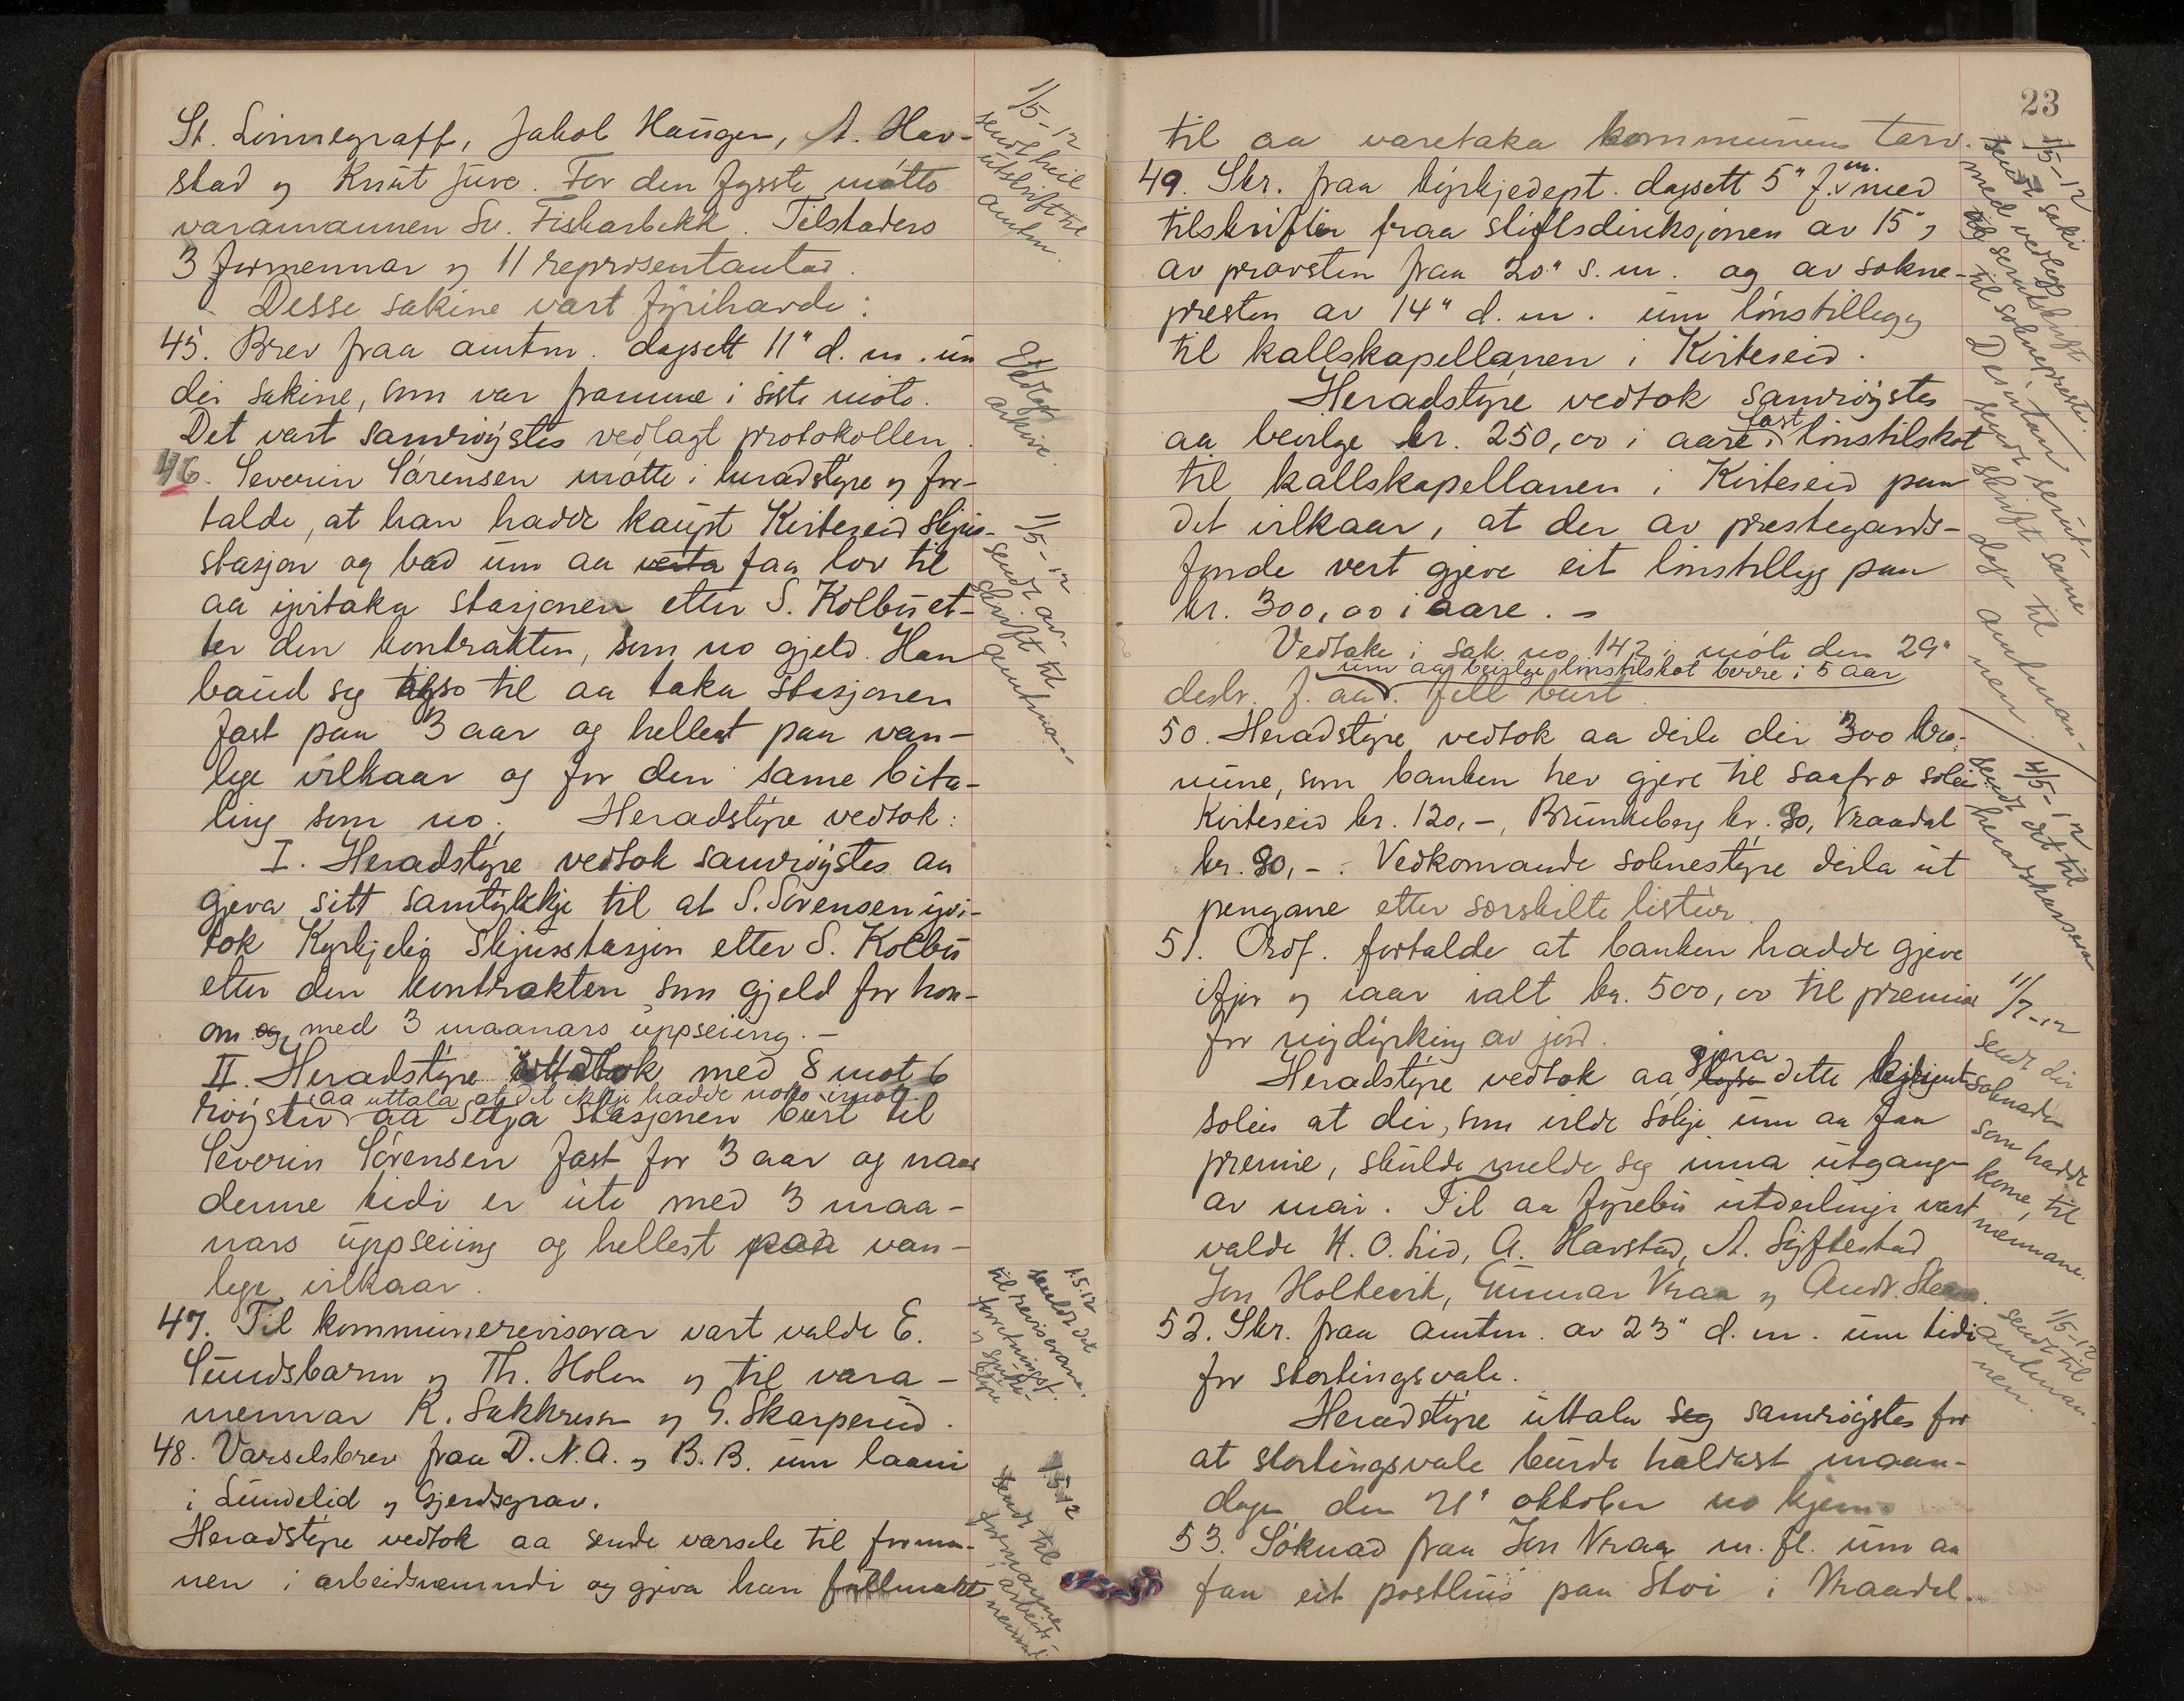 St. Linnegraff, Jakob Haugen, A. Hav-
stad og Knut Juve. For den fysste møtte
varamannen Sv. Fiskarbekk. Tilstaders
3 formennar og 11 representantar.
Desse sakine vart fyrihavde:
45. Brev fraa amtm. dagsett 11" d. m. um
dei sakine, som var framme i siste møte.
Det vart samrøystes vedlagt protokollen.
46. Severin Sørensen møtte i heradstyre og for-
talde, at han hadde kaupt Kviteseid skjus-
stasjon og bad um aa verta faa lov til
aa yvitaka stasjonen etter S. Kolbu et-
ter den kontrakten, som no gjeld. Han
baud seg til aa taka stasjonen
fast paa 3 aar og hellest paa van-
lege vilkaar og for den same bita-
ling som no. Heradstyre vedtok:
I. Heradstyre vedtok samrøystes aa
gjeva sitt samtykkje til at S. Sørensen yvi-
tok Kyrkjebø skjusstasjon etter S. Kolbu
etter den kontrakten som gjeld for hon-
om og med 3 maanars uppseiing. -
II. Heradstyre vedtok med 8 mot 6
aa uttala at det ikkje hadde noko imot
røyster aa setja stasjonen burt til
Severin Sørensen fast for 3 aar og naar
denne tidi er ute med 3 maa-
nars uppseiing og hellest paa van-
lege vilkaar.
47. Til kommunerevisorar vart valde E.
Sundsbarm og Th. Holen og til vara-
mennar K. Sakkresen og G. Skarperud.
48. Varselsbrev fraa D. N. A. og B. B. um laani
i Lundelid og Gjerdsgrav.
Heradstyre vedtok aa sende varsele til forman-
nen i arbeidsnemndi og gjeva han fullmakt
1/5-12
sendt heil
utskrift til
amtm.
Vedlagt
arkive.
11/5-12
sendt av-
skrift til
amtman.
1.5.12
sendt det
til revisorane,
forretningsf.
og spare-
styre
1.5.12
sendt til
formannen
i arbeids-
nemndi
23
til aa varetaka kommunens tarv.
49. Skr. fraa kyrkjedept. dagsett 5" f. m. med
tilskrifter fraa stiftsdireksjonen av 15",
av prosten fraa 20" s. m. og av sokne-
presten av 14" d. m. um lønstillegg
til kallskapellanen i Kviteseid.
Heradstyre vedtok samrøystes
aa bevilge kr. 250,00 i aare i fast lønstilskot
til kallskapellanen i Kviteseid paa
det vilkaar, at der av prestegards-
fonde vert gjeve eit lønstillegg paa
kr. 300,00 i aare. -
Vedtake i sak no 142 i møte den 29"
um aa beivlge lønstilskot berre i 5 aar
desbr. f. aar. fell burt.
50. Heradstyre vedtok aa deile dei 300 kro-
nune, som banken hev gjeve til saafrø soleis
Kviteseid kr. 120,-, Brunkeberg kr. 90, Vraadal
kr. 90,-. Vedkomande soknestyre deila ut
pengane etter sorskilte listur.
51. Ordf. fortalde at banken hadde gjeve
ifjor og iaar ialt kr. 500,00 til premiar
for nydyrking av jord.
Heradstyre vedtok aa lysa gjera dette kjent
soleis at dei, som vilde søkje um aa faa
premie, skulde melde seg inna utgangen
av mai. Til aa fyrebu utdeilingi vart
valde H. O. Lid, A. Havstad, A. Syftestad
Jon Holtevik, Gunnar Vraa og Andr. Steen.
52. Skr. fraa amtm. av 23" d. m. um tidi
for stortingsvale.
Heradstyre uttala seg samrøystes for
at stortingsvale burde haldast maan-
dagen den 21" oktober no kjem.
53. Søknad fraa Jon Vraa m. fl. um aa
faa eit posthus paa Stoi i Vraadal.
1/5-12
sendt saki
med vedlegg
til soknepresten.
Desutan
sendt serut-
skrift same
dag til
amtman-
nen.
4/5-12
sendt det til
heradskassera
11/7-12
sendt dei
søknader
som hadde
kome, til
nemnane.
1/5-12
sendt til
amtman-
nen.